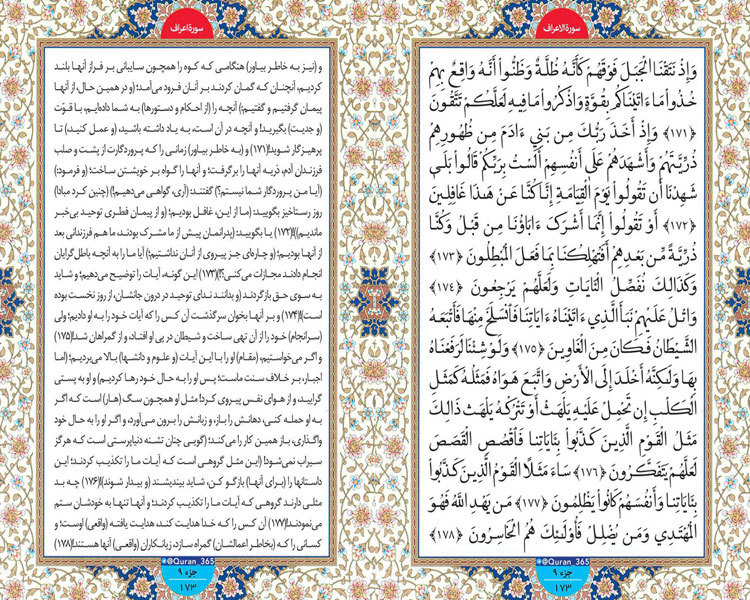 سورة الاعراف
وَإِذ نَتَقْنَا الْجَبَلَ فَوْقَهُمْ كَأَنَّهُ ظُلَّةٌ وَظَنُّوا أَنَّهُ وَاقِعٌ بِهِمْ
خُذُوا مَا ءَاتَيْنَاكُم بِقُوَّةٍ وَاذْكُرُوا مَا فِيهِ لَعَلَّكُمْ تَتَّقُونَ
﴿١٧١﴾ وَإِذْ أَخَذَ رَبُّكَ مِن بَنِي ءَادَمَ مِن ظُهُورِهِمْ
ذُرِّيَّتَهُمْ وَأَشْهَدَهُمْ عَلَىٰ أَنفُسِهِمْ أَلَسْتُ بِرَبِّكُمْ قَالُوا بَلَىٰ
شَهِدْنَا أَن تَقُولُوا يَوْمَ الْقِيَامَةِ إِنَّا كُنَّا عَنْ هَٰذَا غَافِلِينَ
﴿١٧٢﴾ أَوْ تَقُولُوا إِنَّمَا أَشْرَكَ ءَابَاؤُنَا مِن قَبْلُ وَكُنَّا
ذُرِّيَّةً مِّن بَعْدِهِمْ أَفَتُهْلِكُنَا بِمَا فَعَلَ الْمُبْطِلُونَ ﴿١٧٣﴾
وَكَذَالِكَ نُفَصِّلُ الْآيَاتِ وَلَعَلَّهُمْ يَرْجِعُونَ ﴿١٧٤﴾
وَاتْلُ عَلَيْهِمْ نَبَأَ الَّذِي ءَاتَيْنَاهُ ءَايَاتِنَا فَانسَلَخَ مِنْهَا فَأَتْبَعَهُ
الشَّيْطَانُ فَكَانَ مِنَ الْغَاوِينَ ﴿١٧٥﴾ وَلَوْ شِئْنَا لَرَفَعْنَاهُ
بِهَا وَلَٰكِنَّهُ أَخْلَدَ إِلَى الْأَرْضِ وَاتَّبَعَ هَوَاهُ فَمَثَلُهُ كَمَثَلِ
الْكَلْبِ إِن تَحْمِلْ عَلَيْهِ يَلْهَثْ أَوْ تَتْرُكْهُ يَلْهَث ذَالِكَ
مَثَلُ الْقَوْمِ الَّذِينَ كَذَّبُوا بِئَايَاتِنَا فَاقْصُصِ الْقَصَصَ
لَعَلَّهُمْ يَتَفَكَّرُونَ ﴿١٧٦﴾ سَاءَ مَثَلًا الْقَوْمُ الَّذِينَ كَذَّبُوا
بِئَايَاتِنَا وَأَنفُسَهُمْ كَانُوا يَظْلِمُونَ ﴿١٧٧﴾ مَن يَهْدِ اللَّهُ فَهُوَ
الْمُهْتَدِي وَمَن يُضْلِلْ فَأُولَٰئِكَ هُمُ الْخَاسِرُونَ ﴿١٧٨﴾
@Quran_365
جزء ۹
۱۷۳
سورة اعراف
و (نیز به خاطر بیاور) هنگامی که کوه را همچون سایبانی بر فراز آنها بلند
کردیم، آنچنان که گمان کردند بر آنان فرود می‌آمد؛ و در همین حال، از آنها
پیمان گرفتیم و گفتیم:) آنچه را (از احکام و دستورها) به شما داده‌ایم، با قوّت
(و جدیت) بگیرید! و آنچه در آن است، به یاد داشته باشید، (و عمل کنید،) تا
پرهیزگار شوید!(۱۷۱) و (به خاطر بیاور) زمانی را که پروردگارت از پشت و صلب
فرزندان آدم، ذریه آنها را برگرفت؛ و آنها را گواه بر خویشتن ساخت؛ (و فرمود:)
(آیا من پروردگار شما نیستم؟) گفتند: (آری، گواهی می‌دهیم!) (چنین کرد مبادا)
روز رستاخیز بگویید: (ما از این، غافل بودیم؛ (و از پیمان فطری توحید بی‌خبر
ماندیم))!(۱۷۲) یا بگویید: (پدرانمان پیش از ما مشرک بودند، ما هم فرزندانی بعد
از آنها بودیم؛ (و چاره‌ای جز پیروی از آنان نداشتیم؛) آیا ما را به آنچه باطل‌گرایان
انجام دادند مجازات می‌کنی؟)!(۱۷۳) این گونه، آیات را توضیح می‌دهیم؛ و شاید
به سوی حق بازگردند (و بدانند ندای توحید در درون جانشان، از روز نخست بوده
است)!(۱۷۴) و بر آنها بخوان سرگذشت آن کس را که آیات خود را به او دادیم؛ ولی
(سرانجام) خود را از آن تهی ساخت و شیطان در پی او افتاد، و از گمراهان شد!(۱۷۵)
و اگر می‌خواستیم، (مقام) او را با این آیات (و علوم و دانشها) بالا می‌بردیم؛ (اما
اجبار، بر خلاف سنت ماست؛ پس او را به حال خود رها کردیم) و او به پستی
گرایید، و از هوای نفس پیروی کرد! مثل او همچون سگ (هار) است که اگر
به او حمله کنی، دهانش را باز، و زبانش را برون می‌آورد، و اگر او را به حال خود
واگذاری، باز همین کار را می‌کند؛ (گویی چنان تشنه دنیاپرستی است که هرگز
سیراب نمی‌شود! (این مثل گروهی است که آیات ما را تکذیب کردند؛ این
داستانها را (برای آنها) بازگو کن، شاید بیندیشند (و بیدار شوند)!(۱۷۶) چه بد
مثلی دارند گروهی که آیات ما را تکذیب کردند؛ و آنها تنها به خودشان ستم
می‌نمودند!(۱۷۷) آن کس را که خدا هدایت کند، هدایت یافته (واقعی) اوست؛ و
کسانی را که (بخاطر اعمالشان) گمراه سازد، زیانکاران (واقعی) آنها هستند!(۱۷۸)
@Quran_365
جزء ۹
۱۷۳